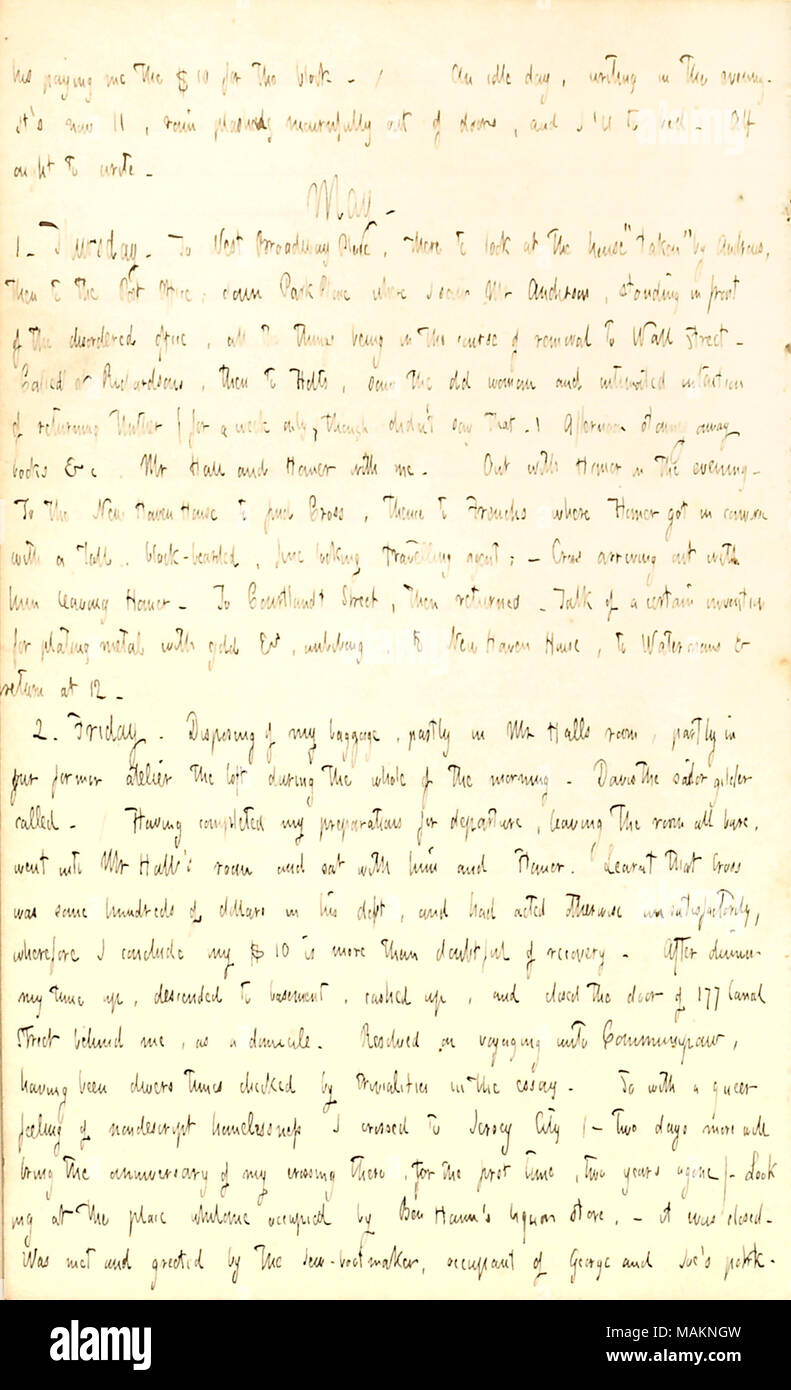 his paying me the $10 for the block - / An idle day, writing in the evening.
It's now 11, rain plashing mournfully out of doors, and I'll to bed - Alf
ought to write -
May -
1 - Thursday - To West Broadway Place, there to look at the house "taken" by Andrews,
then to the Post Office, down Park Place where I saw Mr Anderson, standing in front
of the disordered office, all the things being in the course of removal to Wall Street -
Called at Richardsons, then to Holts, saw the old woman and intimated intention
of returning thither / for a week only, though didn't say that - / Afternoon stowing away
books &c. Mr Hall and Homer with me - Out with Homer in the evening -
To the New Haven House to find Cross, thence to Frenchs where Homer got in converse
with a tall, black-bearded, fine looking travelling agent; - Cross arriving out with
him leaving Homer - To Courtlandt Street, then returned - Talk of a certain invention
for plating metal with gold &c, imbibing. To New Haven House, to Watermans &
return at 12 -
2 - Friday - Disposing of my baggage, partly in Mr Halls room, partly in
our former atelier the loft during the whole of the morning - Davis the sailor gilder
called - / Having completed my preparations for departure, leaving the room all bare,
went into Mr Hall's room and sat with him and Homer. Learnt that Cross
was some hundreds of dollars in his debt, and had acted otherwise unsatisfactorily,
wherefore I conclude my $10 is more than doubtful of recovery - After dinner
my time up, descended to basement, cashed up, and closed the door of 177 Canal
Street behind me, as a domicile - Resolved on voyaging unto Communipaw,
having been divers times checked by trivialities in the essay - So with a queer
feeling of nondescript homelessness I crossed to Jersey City / - two days more will
bring the anniversary of my crossing there, for the first time, two years agone / - Look
ing at the place whilome occupied by Ben Hann's liquor store, - it was closed -
Was met and greeted by the Jew-bootmaker, occupant of George and Joe's
alamy
Image ID: MAKNGW
www.alamy.com